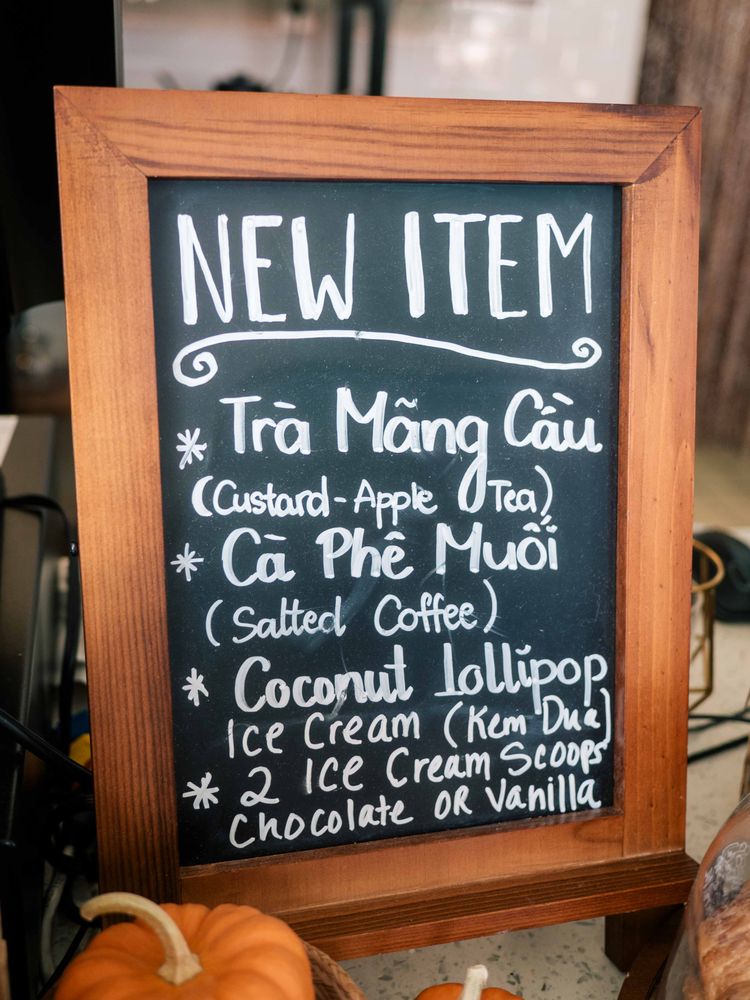 NEW ITEM
* Trà Mãng Cầu
(Custard-Apple Tea)
* Cà Phê Muối
(Salted Coffee)
* Coconut Lollipop
Ice Cream (Kem Dua)
* 2 Ice Cream Scoops
Chocolate OR Vanilla